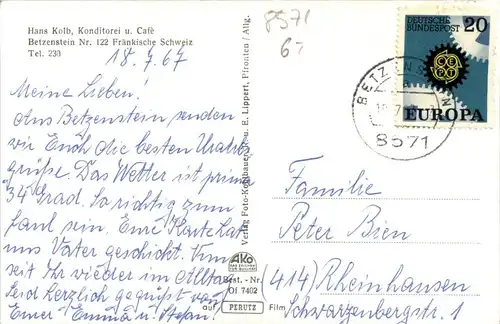 Hans Kolb, Konditorei u. Café
Betzenstein Nr. 122 Fränkische Schweiz
Tel. 230
18.7.67
Meine Lieben!
Aus Betzenstein senden
wir Euch die besten Urlaubs
grüße. Das Wetter ist prima
34 Grad. So richtig zum
faul sein. Eure Karte hat
uns Vater geschickt. Nun
seit Ihr wieder im Alltag.
Seid herzlich gegrüßt von
Eurer Emma u. Stefan!
Verlag Foto-Kohlbauer u. E. Lippert, Pfronten / Allg.
AKO
Best.-Nr.
Of 7402
auf PERUTZ Film
8571
67
DEUTSCHE
BUNDESPOST 20
CEPT
EUROPA
BETZENSTEIN
8571
Familie
Peter Bien
(414) Rheinhausen
Schwarzenbergstr. 1